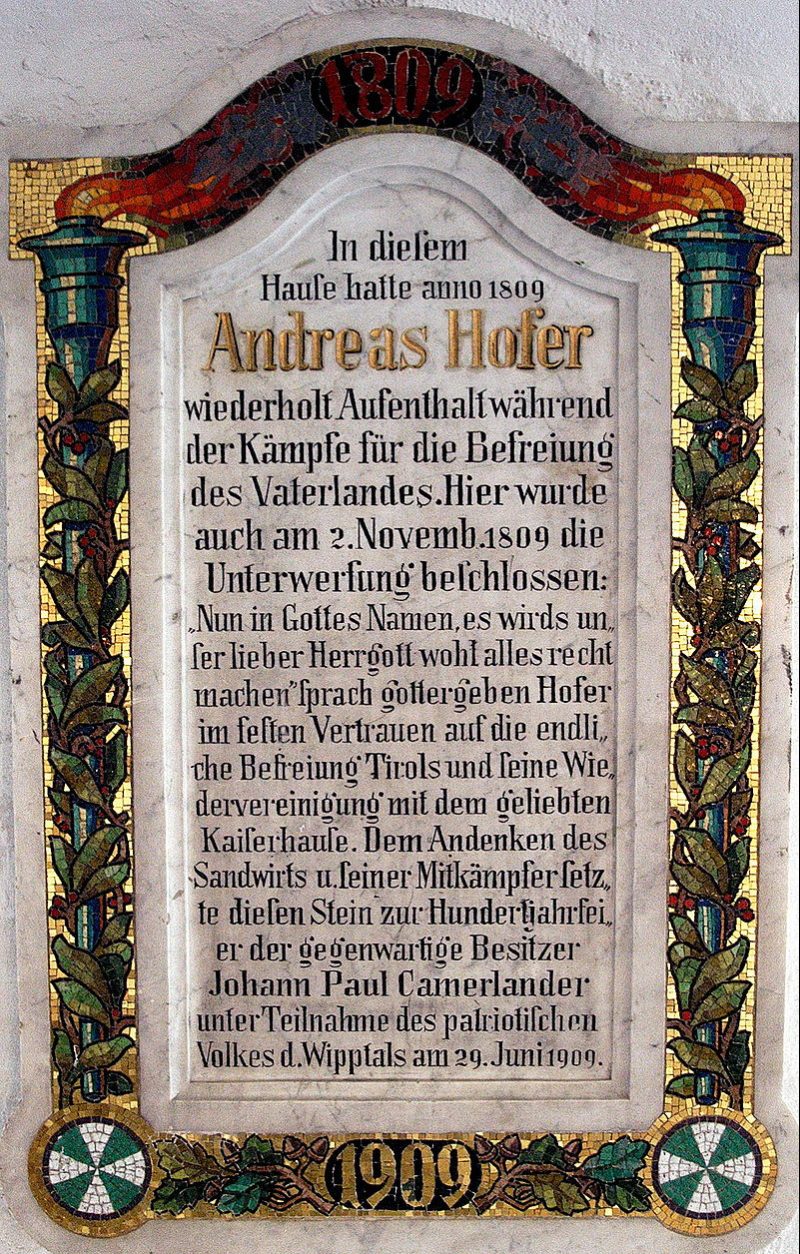 1809
In dieſem
Hauſe hatte anno 1809
Andreas Hofer
wiederholt Aufenthalt während
der Kämpfe für die Befreiung
des Vaterlandes. Hier wurde
auch am 2. Novemb. 1809 die
Unterwerfung beſchloſſen:
„Nun in Gottes Namen, es wirds un„
ſer lieber Herrgott wohl alles recht
machen" ſprach gottergeben Hofer
im feſten Vertrauen auf die endli„
che Befreiung Tirols und ſeine Wie„
dervereinigung mit dem geliebten
Kaiſerhauſe. Dem Andenken des
Sandwirts u. ſeiner Mitkämpfer ſetz„
te dieſen Stein zur Hundertjahrfei„
er der gegenwartige Besitzer
Johann Paul Camerlander
unter Teilnahme des patriotiſchen
Volkes d. Wipptals am 29. Juni 1909.
1909